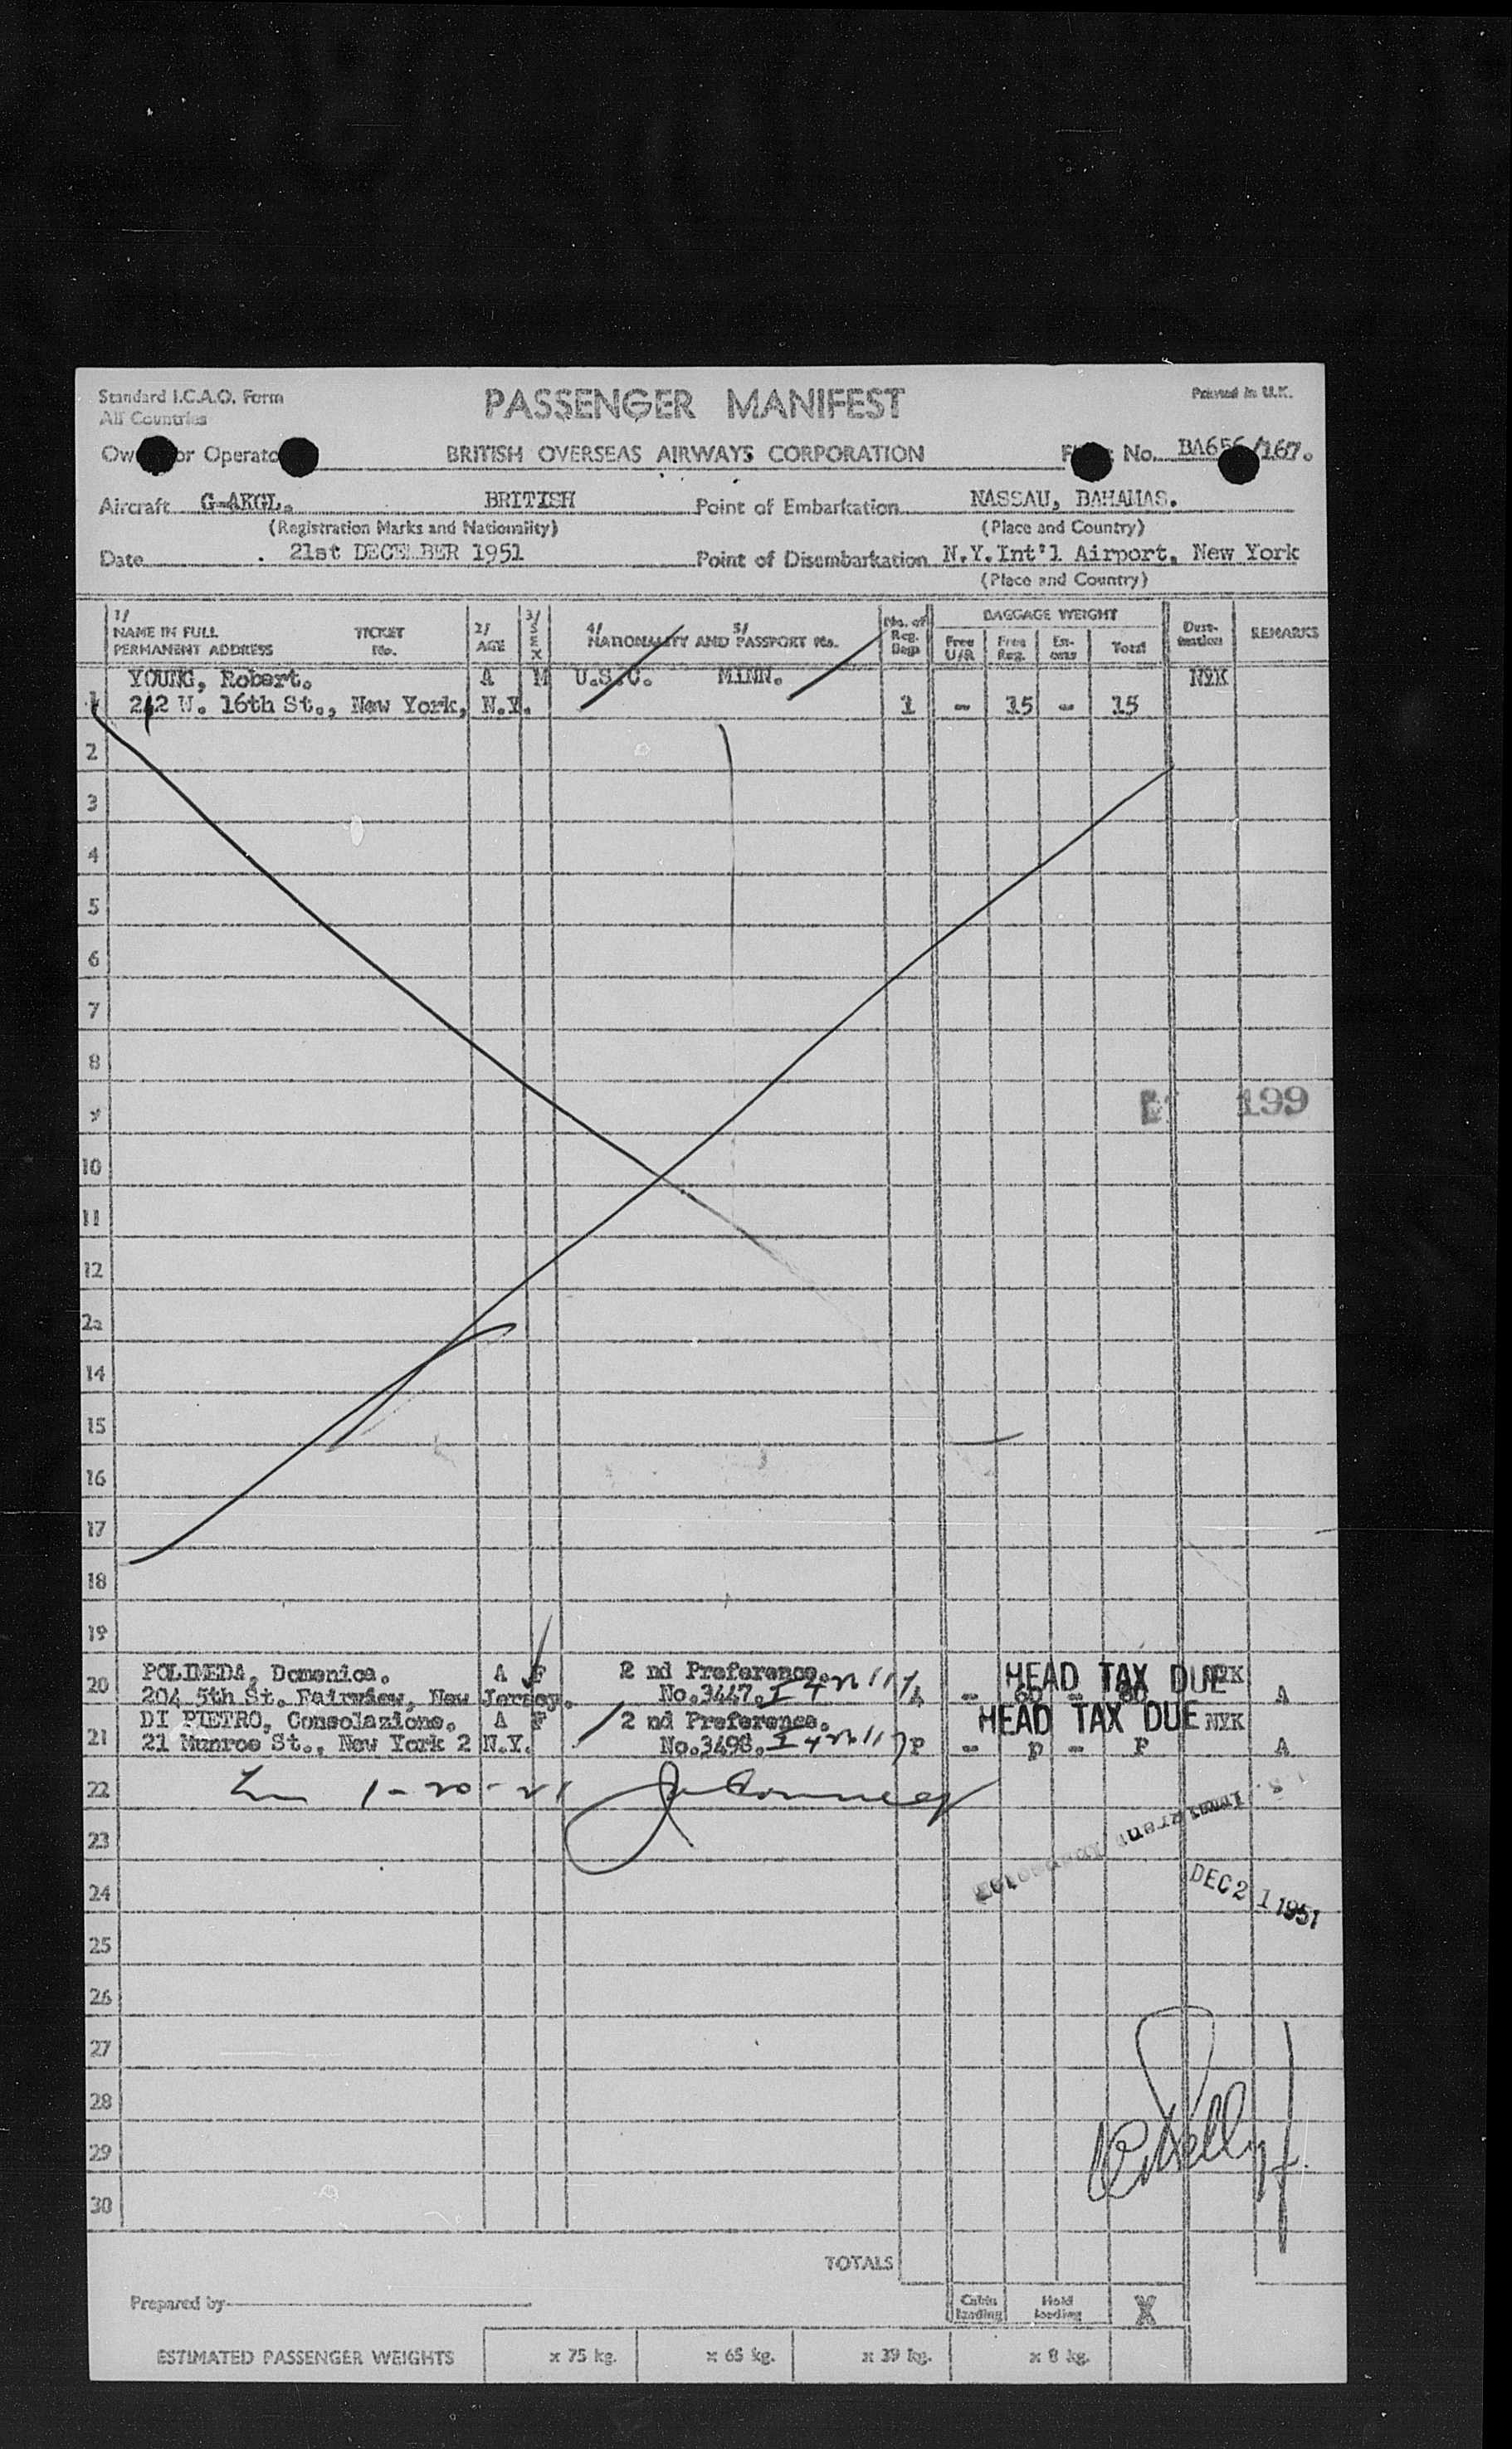 Standard I.C.A.O. Form
All Countries
PASSENGER MANIFEST
Printed in U.K.
or BRITISH OVERSEAS AIRWAYS CORPORATION No. /167.
Aircraft G-AKGL. BRITISH Point of Embarkation NASSAU, BAHAMAS.
(Registration Marks and Nationality) (Place and Country)
Date 21st DECEMBER 1951 Point of Disembarkation N.Y.Int'l Airport, New York
(Place and Country)
1/ NAME IN FULL PERMANENT ADDRESS TICKET No. 2/ AGE 3/ SEX 4/ NATIONALITY AND 5/ PASSPORT No. No. of Reg. Bags BAGGAGE WEIGHT Free U/R Free Reg. Total Dest-ination REMARKS
YOUNG, Robert. A M U.S.C. MINN. NYK
1 242 W. 16th St., New York, N.Y. 1 - 15 - 15
2
3
4
5
6
7
8
9 199
10
11
12
14
15
16
17
18
19
Domenica. A F 2 nd Preference. HEAD TAX DUE NYK
20 204 5th St. Fairview, New Jersey. No.3447. - 60 - 60 A
DI PIETRO, Consolazione. A F 2 nd Preference. HEAD TAX DUE NYK
21 21 Munroe St., New York 2 N.Y. No.3498. P - P - P A
22
23
24 DEC 21 1951
25
26
27
28
29
30
TOTALS
Prepared by Cabin loading Hold loading X
ESTIMATED PASSENGER WEIGHTS x 75 kg. x 65 kg. x 39 kg. x 8 kg.